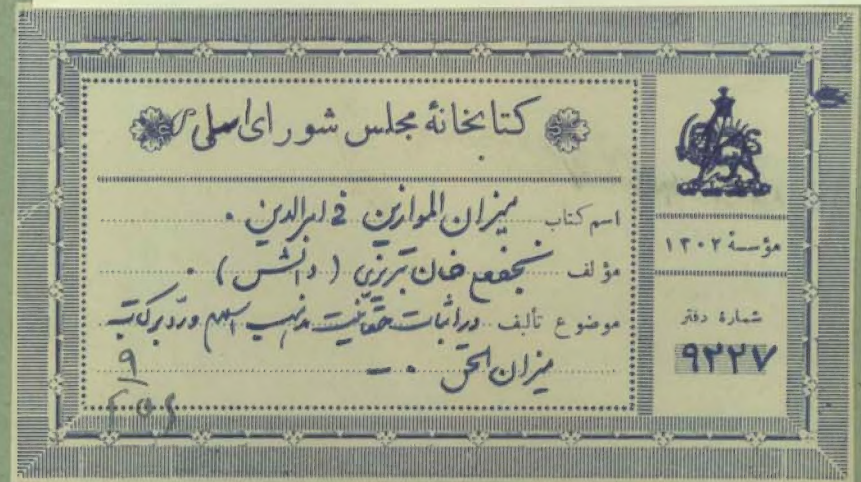 کتابخانهٔ مجلس شورای اسلامی
اسم کتاب میزان الموازین فی امر الدین .
مؤلف نجفقلی خان تبریزی (دانش) .
موضوع تألیف در اثبات حقانیت مذهب اسلام و رد بر کتاب
میزان الحق . ــ
۱۹
مؤسسهٔ ۱۳۰۲
شمارهٔ دفتر
۹۲۲۷